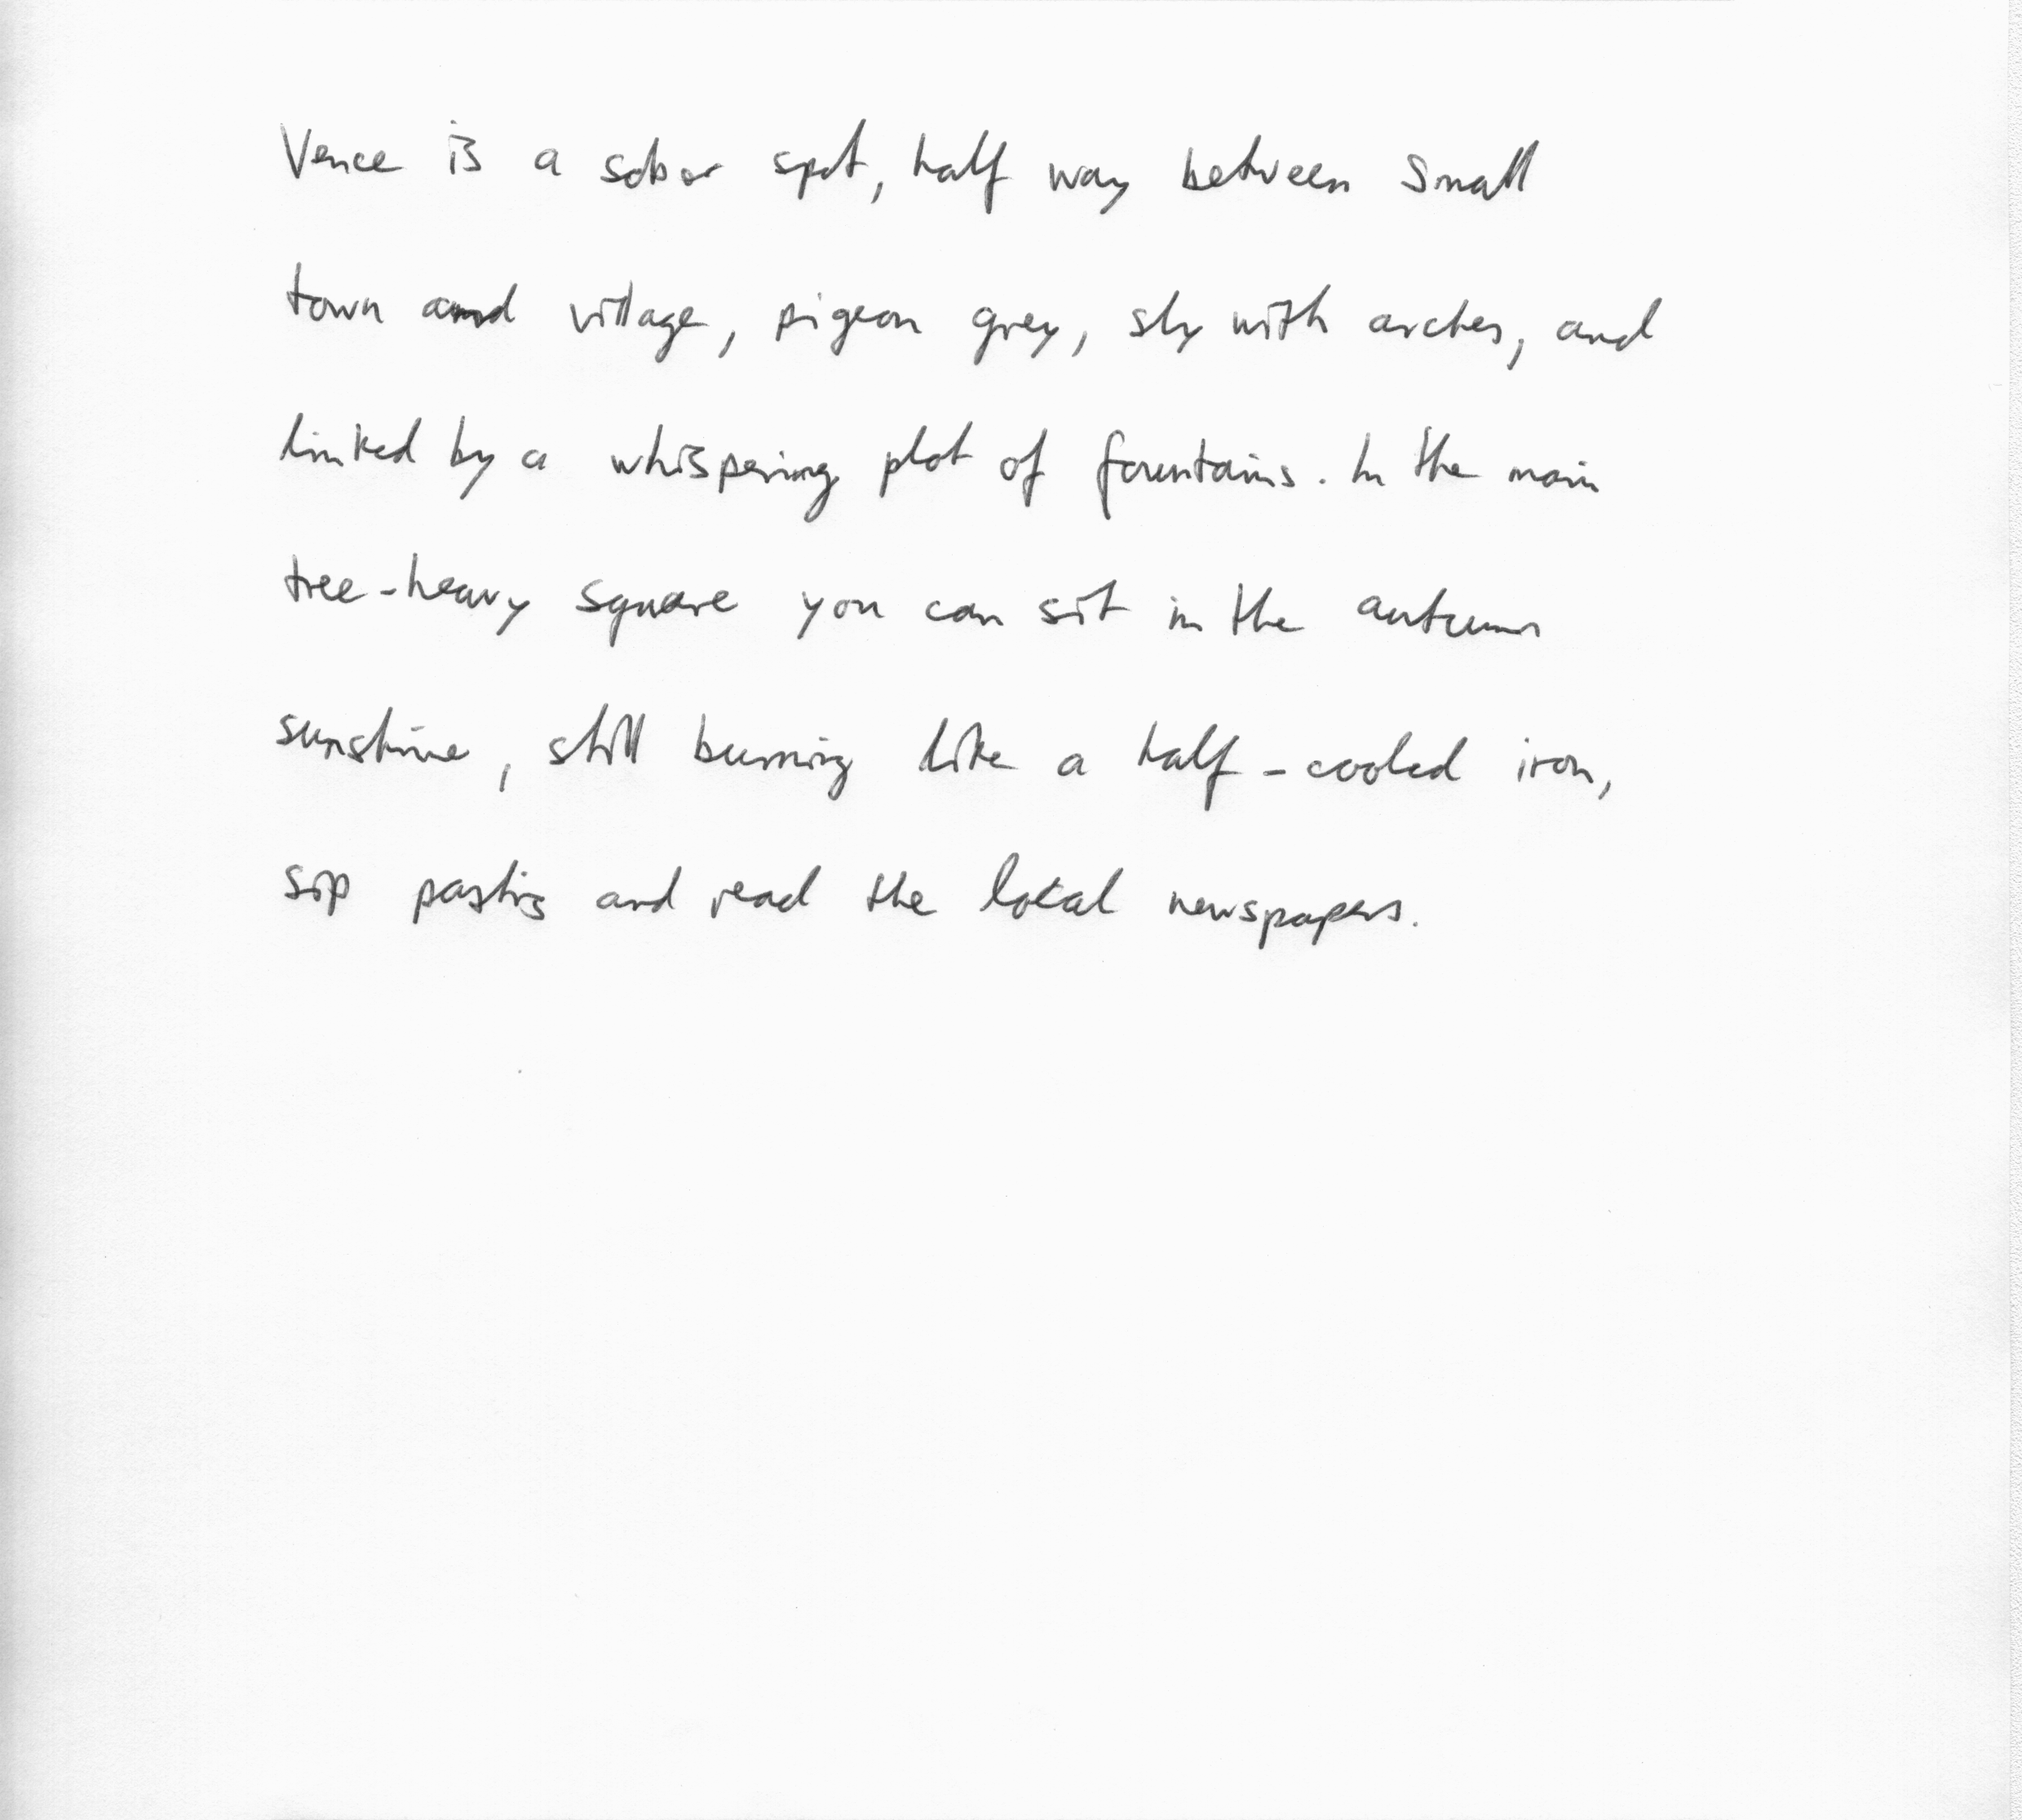 Vence is a sober spot, half way between small
town and village, pigeon grey, sly with arches, and
linked by a whispering plot of fountains. In the main
tree-heavy square you can sit in the autumn
sunshine, still burning like a half-cooled iron,
sip pastis and read the local newspapers.